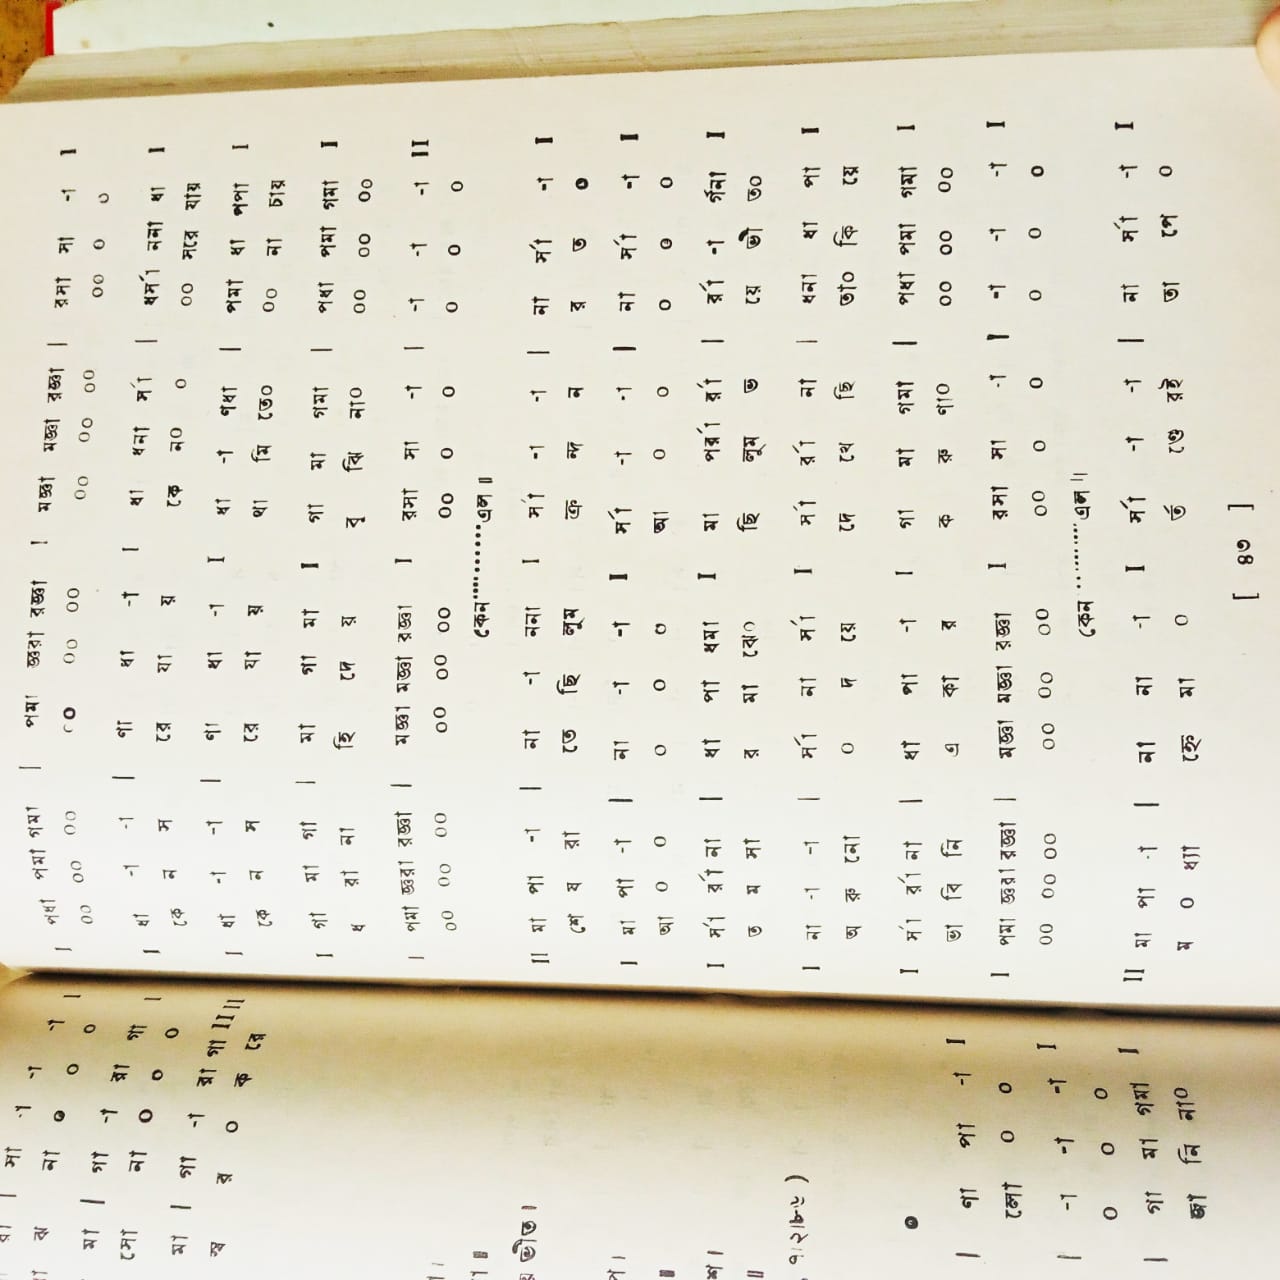 I পধা পমা গমা | পমা জ্ঞরা রজ্ঞা I মজ্ঞা মজ্ঞা রজ্ঞা | রসা সা -া I
০০ ০০ ০০ ০০ ০০ ০০ ০০ ০০ ০০ ০০ ০ ০
I ধা -া -া | ণা ধা -া I ধা ধনা র্সা | ধর্সা ননা ধা I
কে ন স রে যা য় কে ন০ ০ ০০ সরে যায়
I ধা -া -া | ণা ধা -া I ধা -া পধা | পমা ধা পপা I
কে ন স রে যা য় থা মি তে০ ০০ না চায়
I গা মা গা | মা গা মা I গা মা গমা | পধা পমা গমা I
ধ রা না হি দে য় বু ঝি না০ ০০ ০০ ০০
I পমা জ্ঞরা রজ্ঞা | মজ্ঞা মজ্ঞা রজ্ঞা I রসা সা -া | -া -া -া II
০০ ০০ ০০ ০০ ০০ ০০ ০০ ০ ০ ০ ০ ০
কেন..........এল ॥
II মা পা -া | না -া ননা I র্সা -া -া | না র্সা -া I
শে ষ রা তে ছি লুম ক্রে ন্দ ন র ত ০
I মা পা -া | না -া -া I র্সা -া -া | না র্সা -া I
আ ০ ০ ০ ০ ০ আ ০ ০ ০ ০ ০
I র্সা র্রা না | ধা পা ধমা I মা পর্রা র্রা | র্রা -া র্গনা I
ত ম সা র মা ঝে০ ছি লুম ভ য়ে ভী ত০
I না -া -া | র্সা না র্সা I র্সা র্রা না | ধনা ধা পা I
অ রু নো ০ দ য়ে দে খে ছি তা০ কি য়ে
I র্সা র্রা না | ধা পা -া I গা মা গমা | পধা পমা গমা I
ভা বি নি এ কা র ক রু ণা০ ০০ ০০ ০০
I পমা জ্ঞরা রজ্ঞা | মজ্ঞা মজ্ঞা রজ্ঞা I রসা সা -া | -া -া -া I
০০ ০০ ০০ ০০ ০০ ০০ ০০ ০ ০ ০ ০ ০
কেন ..........এল ॥
II মা পা -া | না না -া I র্সা -া -া | না র্সা -া I
ম ০ ধ্যা হ্নে মা ০ র্ত ণ্ডে রই তা পে ০
[ ৪৩ ]
| ণা পা -া I
লো ০ ০
| -া -া -া I
০ ০ ০
| গা মা গমা I
জা নি না০